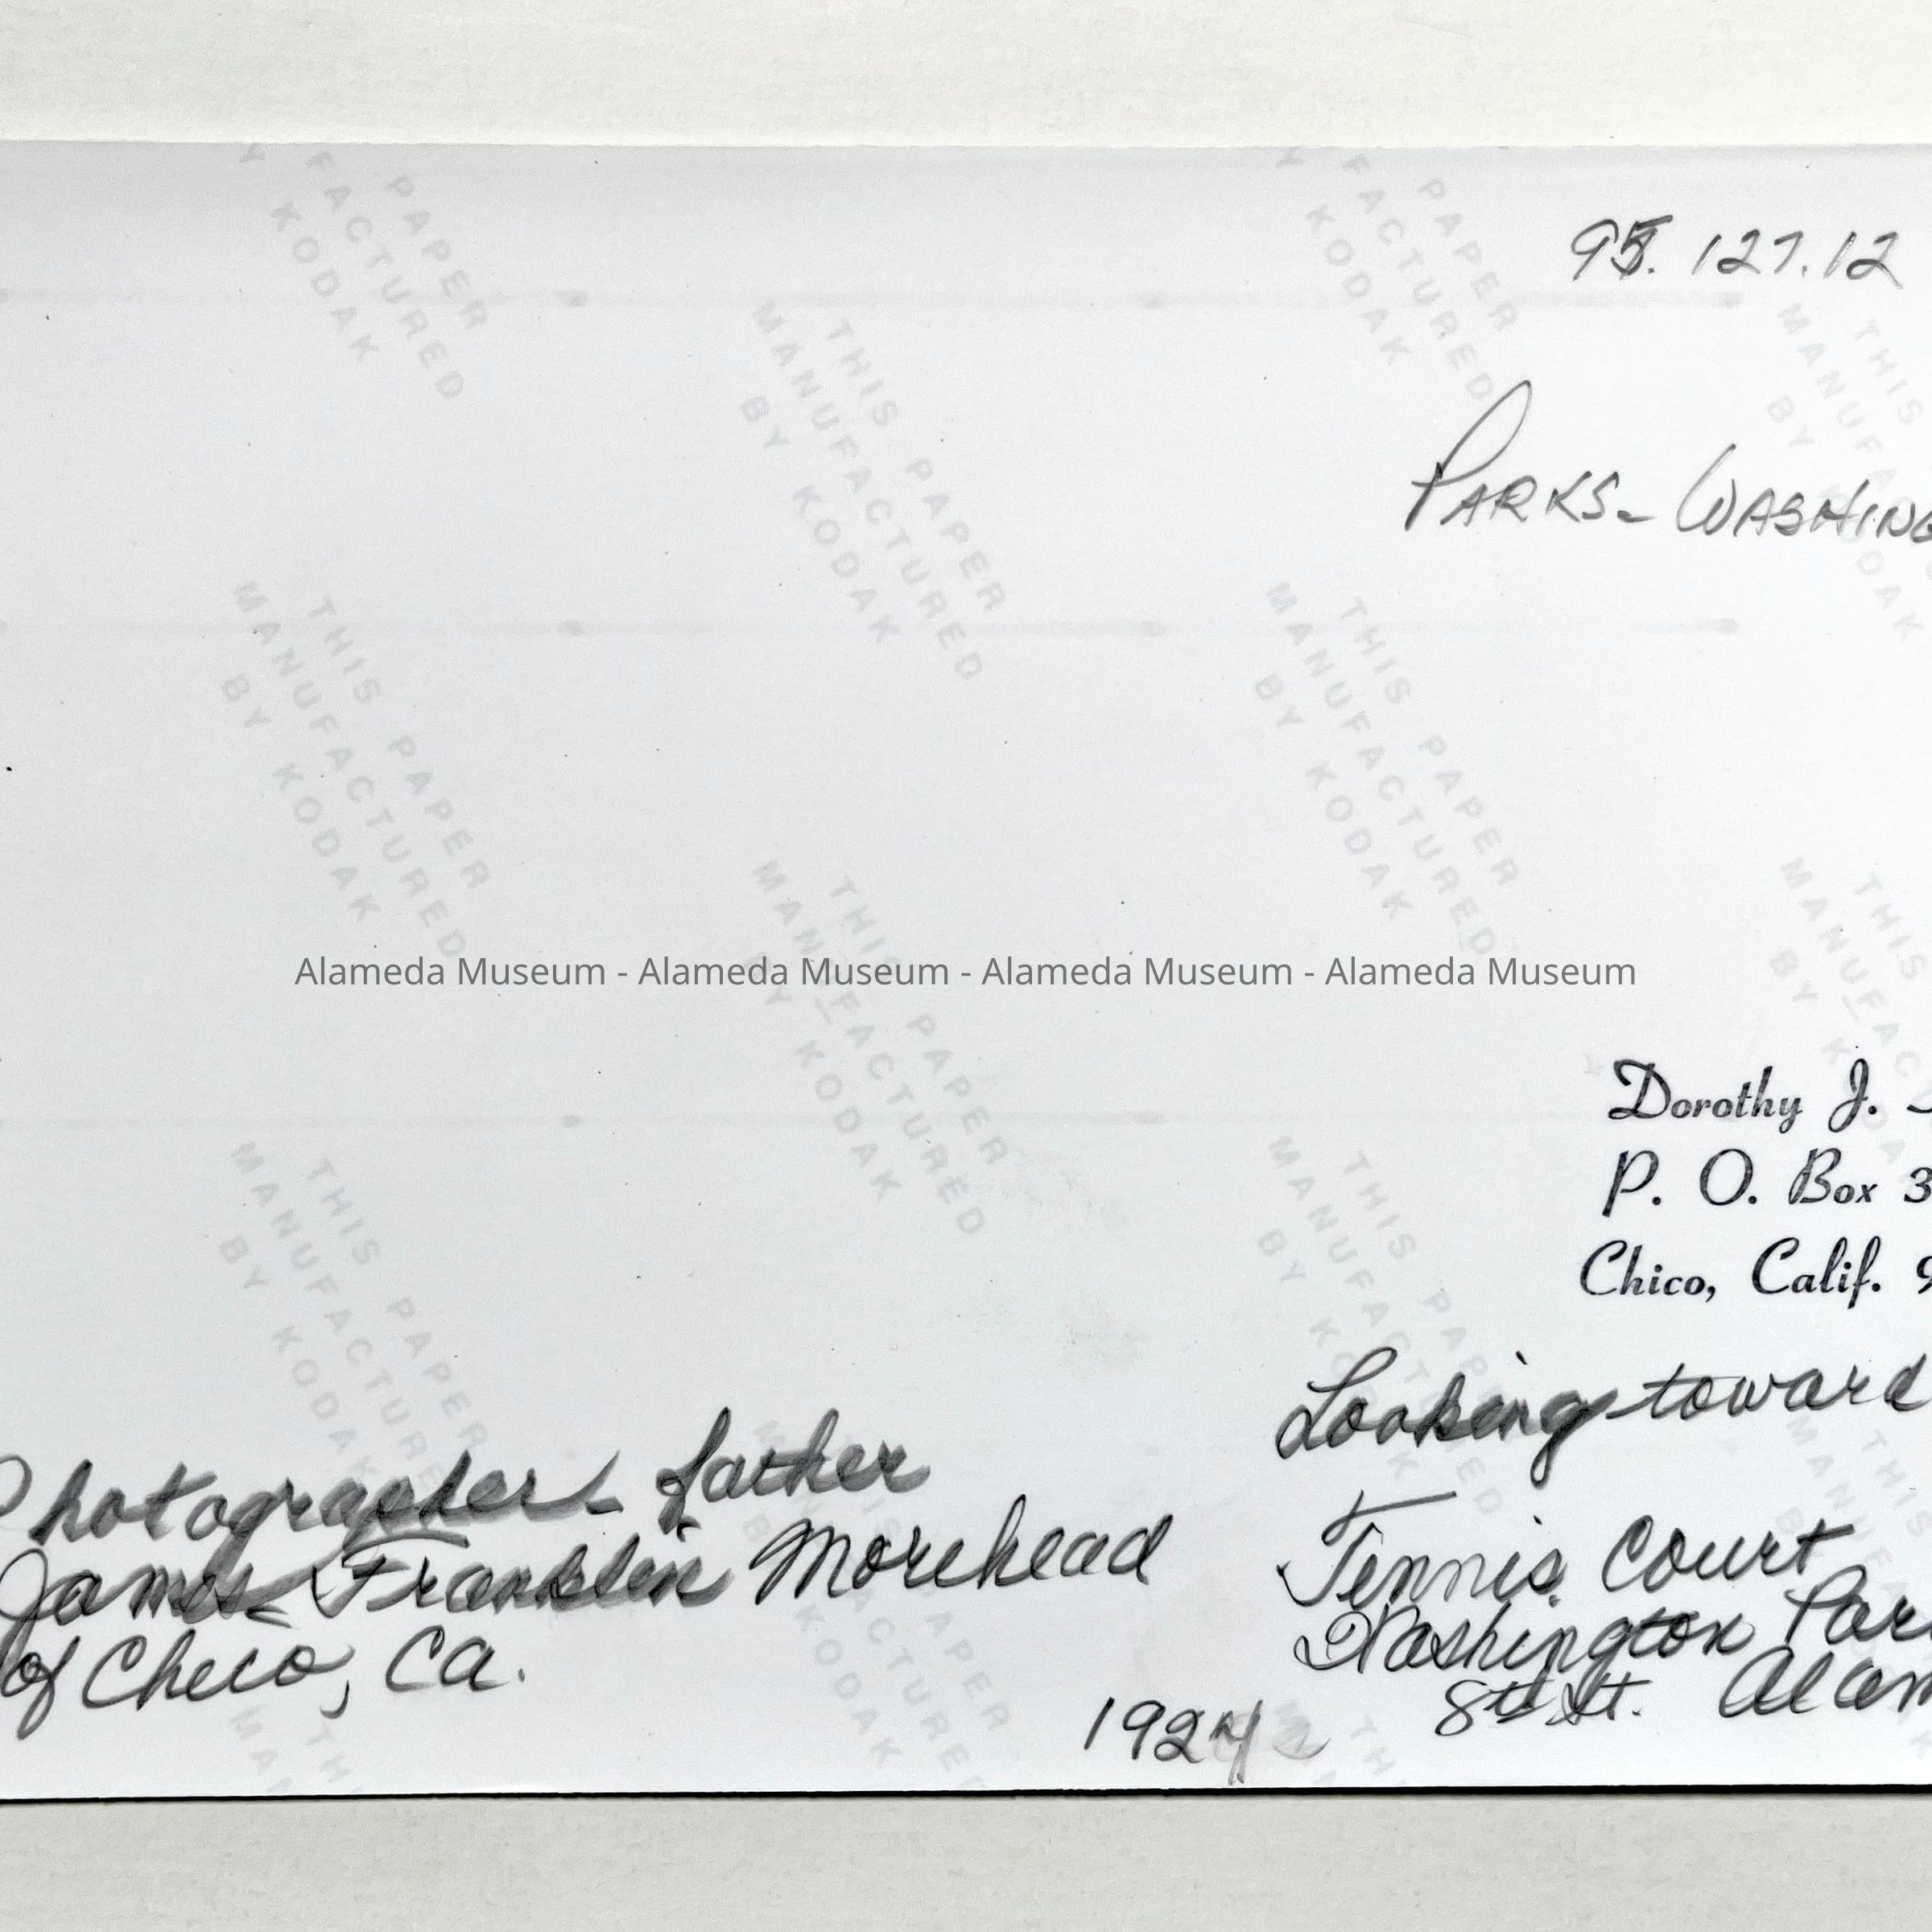 95.127.12
PARKS- WASHING
THIS PAPER
MANUFACTURED
BY KODAK
Alameda Museum - Alameda Museum - Alameda Museum - Alameda Museum
Dorothy J.
P. O. Box 3
Chico, Calif. 9
Photographer- father
James Franklin Morehead
of Chico, CA.
1924
Looking toward
Tennis Court
Washington Par
8th St. Alam